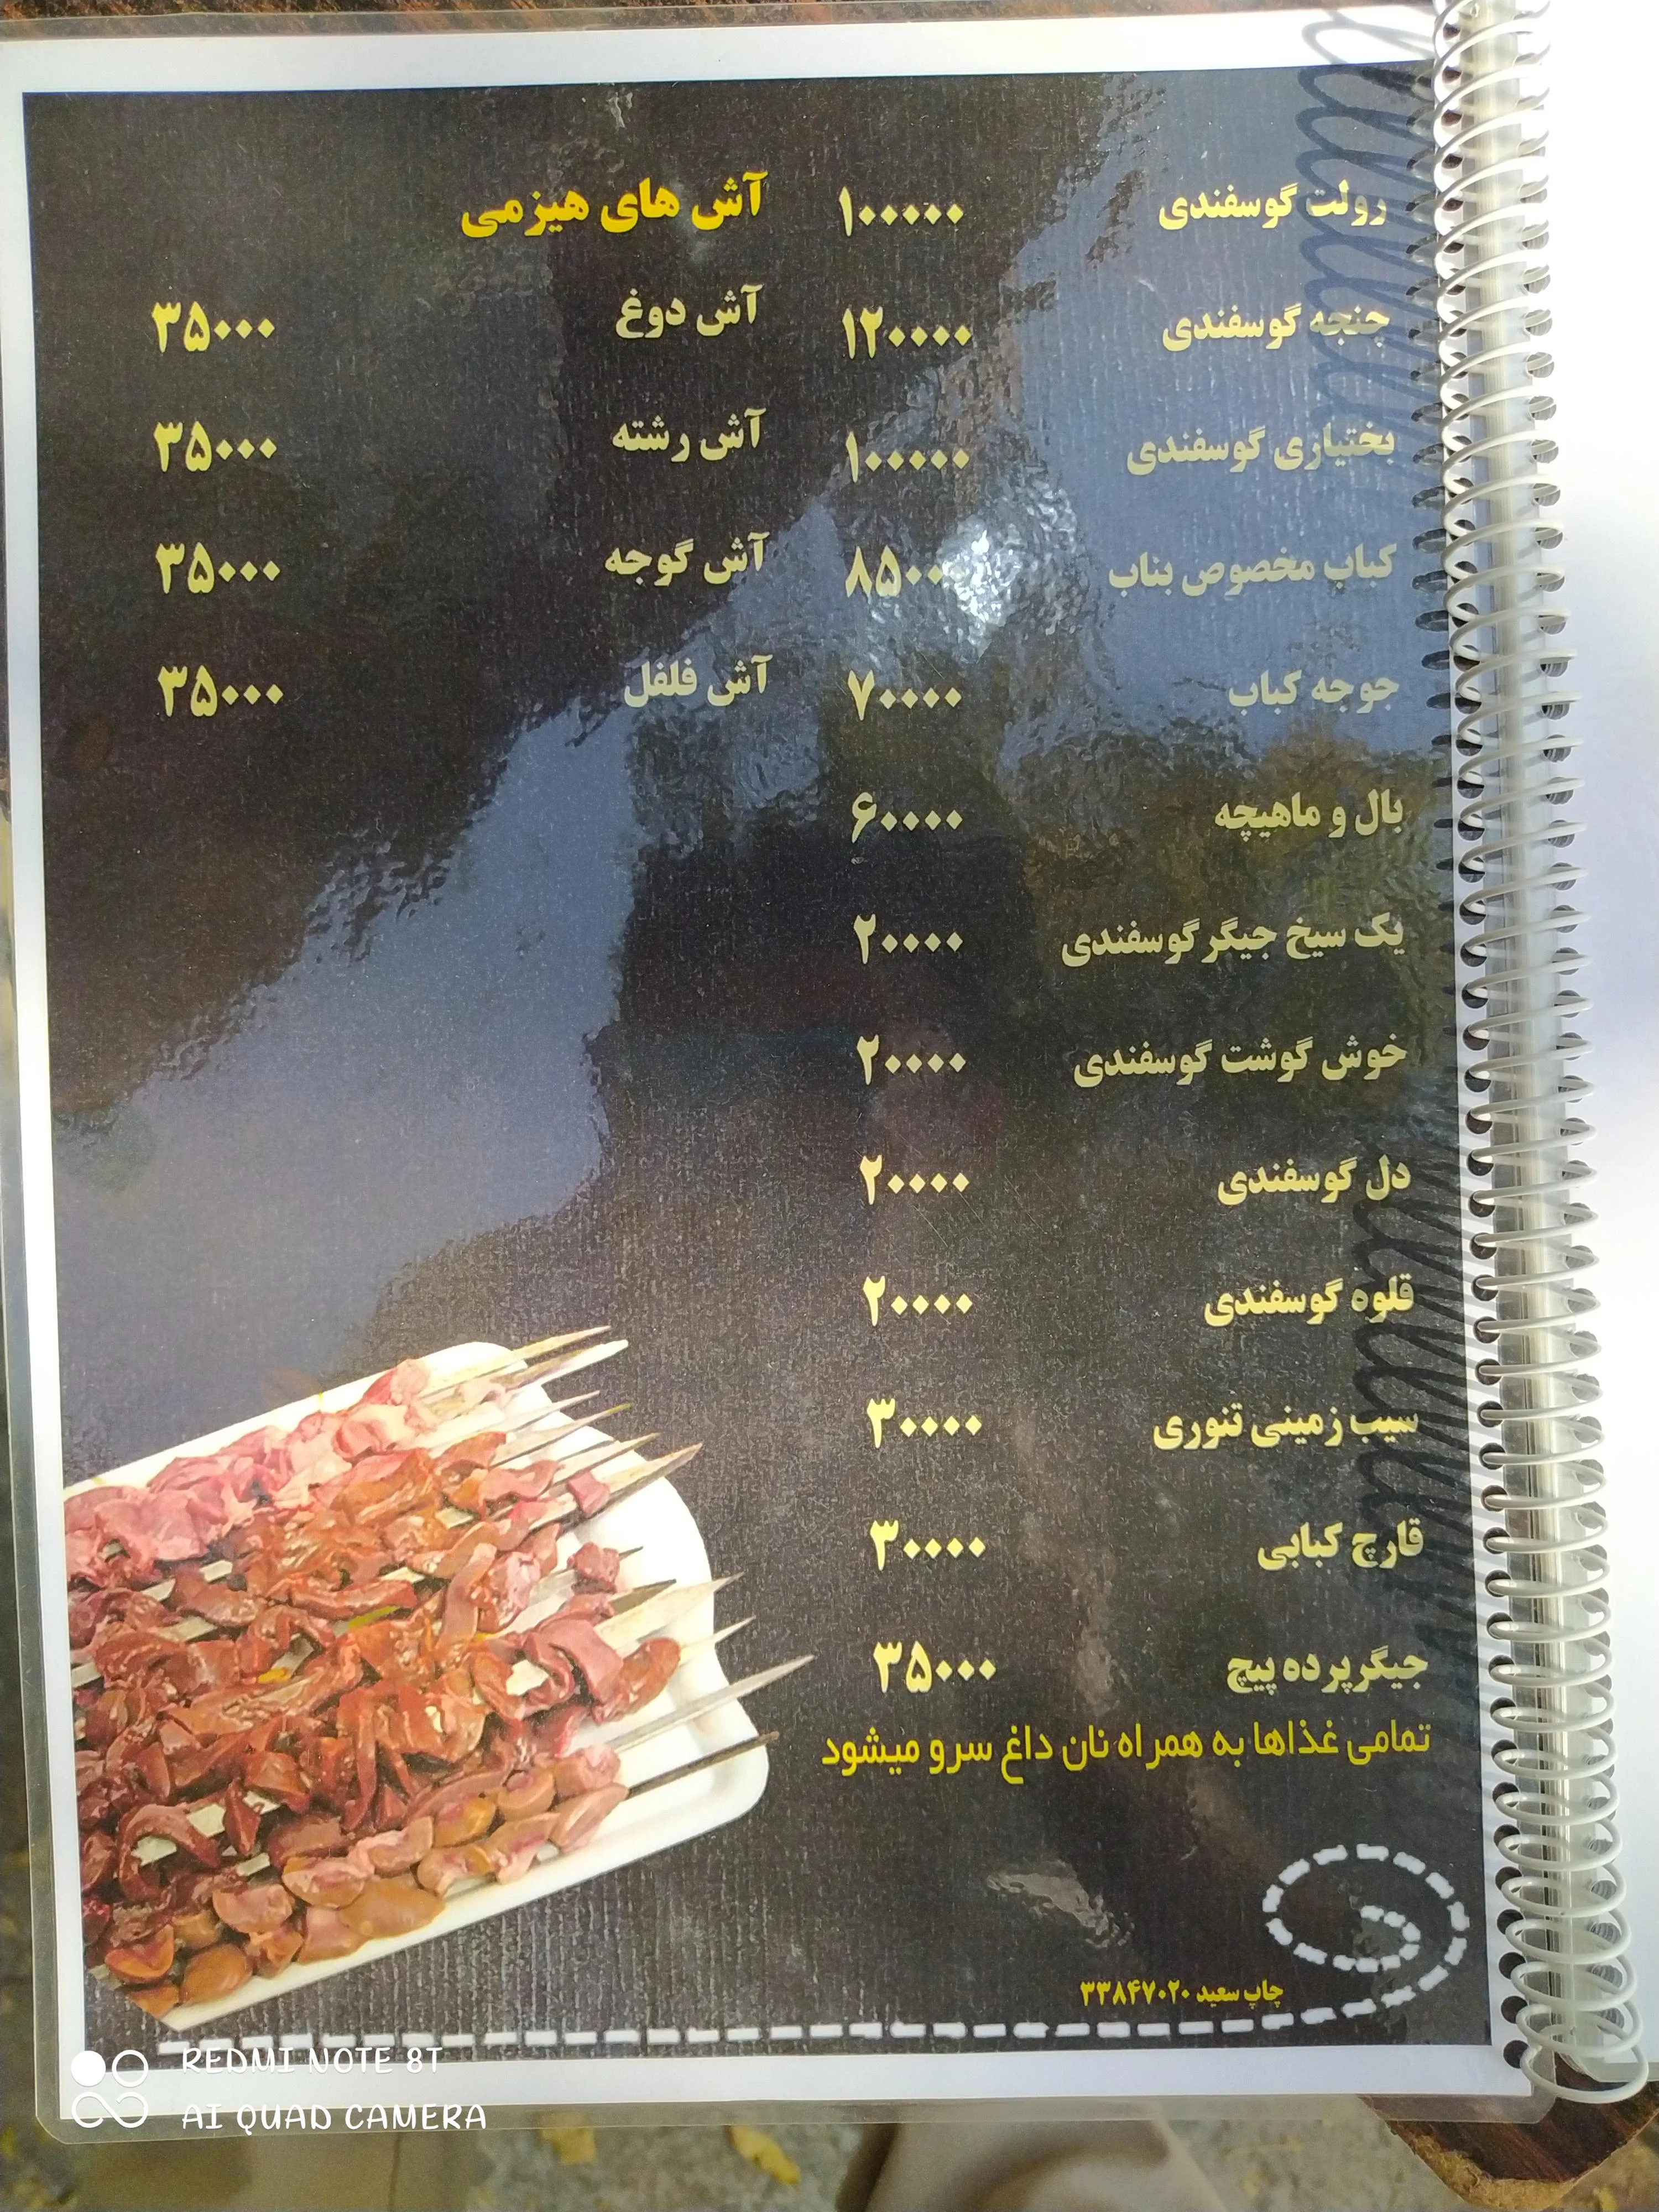 رولت گوسفندی ۱۰۰۰۰۰
چنجه گوسفندی ۱۲۰۰۰۰
بختیاری گوسفندی ۱۰۰۰۰۰
کباب مخصوص بناب ۸۵۰۰۰
جوجه کباب ۷۰۰۰۰
بال و ماهیچه ۶۰۰۰۰
یک سیخ جیگر گوسفندی ۲۰۰۰۰
خوش گوشت گوسفندی ۲۰۰۰۰
دل گوسفندی ۲۰۰۰۰
قلوه گوسفندی ۲۰۰۰۰
سیب زمینی تنوری ۳۰۰۰۰
قارچ کبابی ۳۰۰۰۰
جیگرپرده پیچ ۳۵۰۰۰
تمامی غذاها به همراه نان داغ سرو میشود
آش های هیزمی
آش دوغ ۳۵۰۰۰
آش رشته ۳۵۰۰۰
آش گوجه ۳۵۰۰۰
آش فلفل ۳۵۰۰۰
چاپ سعید ۳۳۸۴۷۰۲۰
REDMI NOTE 8T
AI QUAD CAMERA